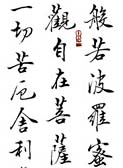 般若波羅蜜
觀自在菩薩
一切苦厄舍利